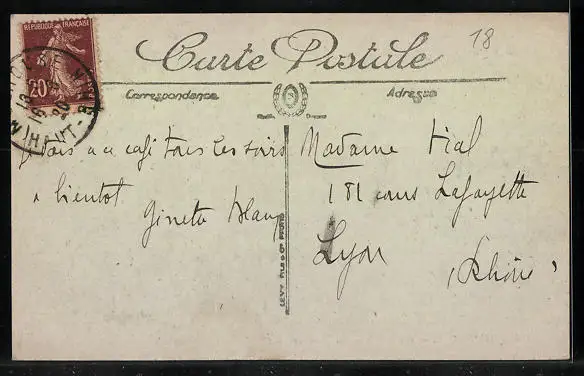 18
RÉPUBLIQUE FRANÇAISE
20c
Carte Postale
Correspondance
Adresse
vais au café tous les soirs
a bientot
Ginette Blanc
Madame Vial
181 cours Lafayette
Lyon
(Rhône)
LEVY FILS & Cie PARIS